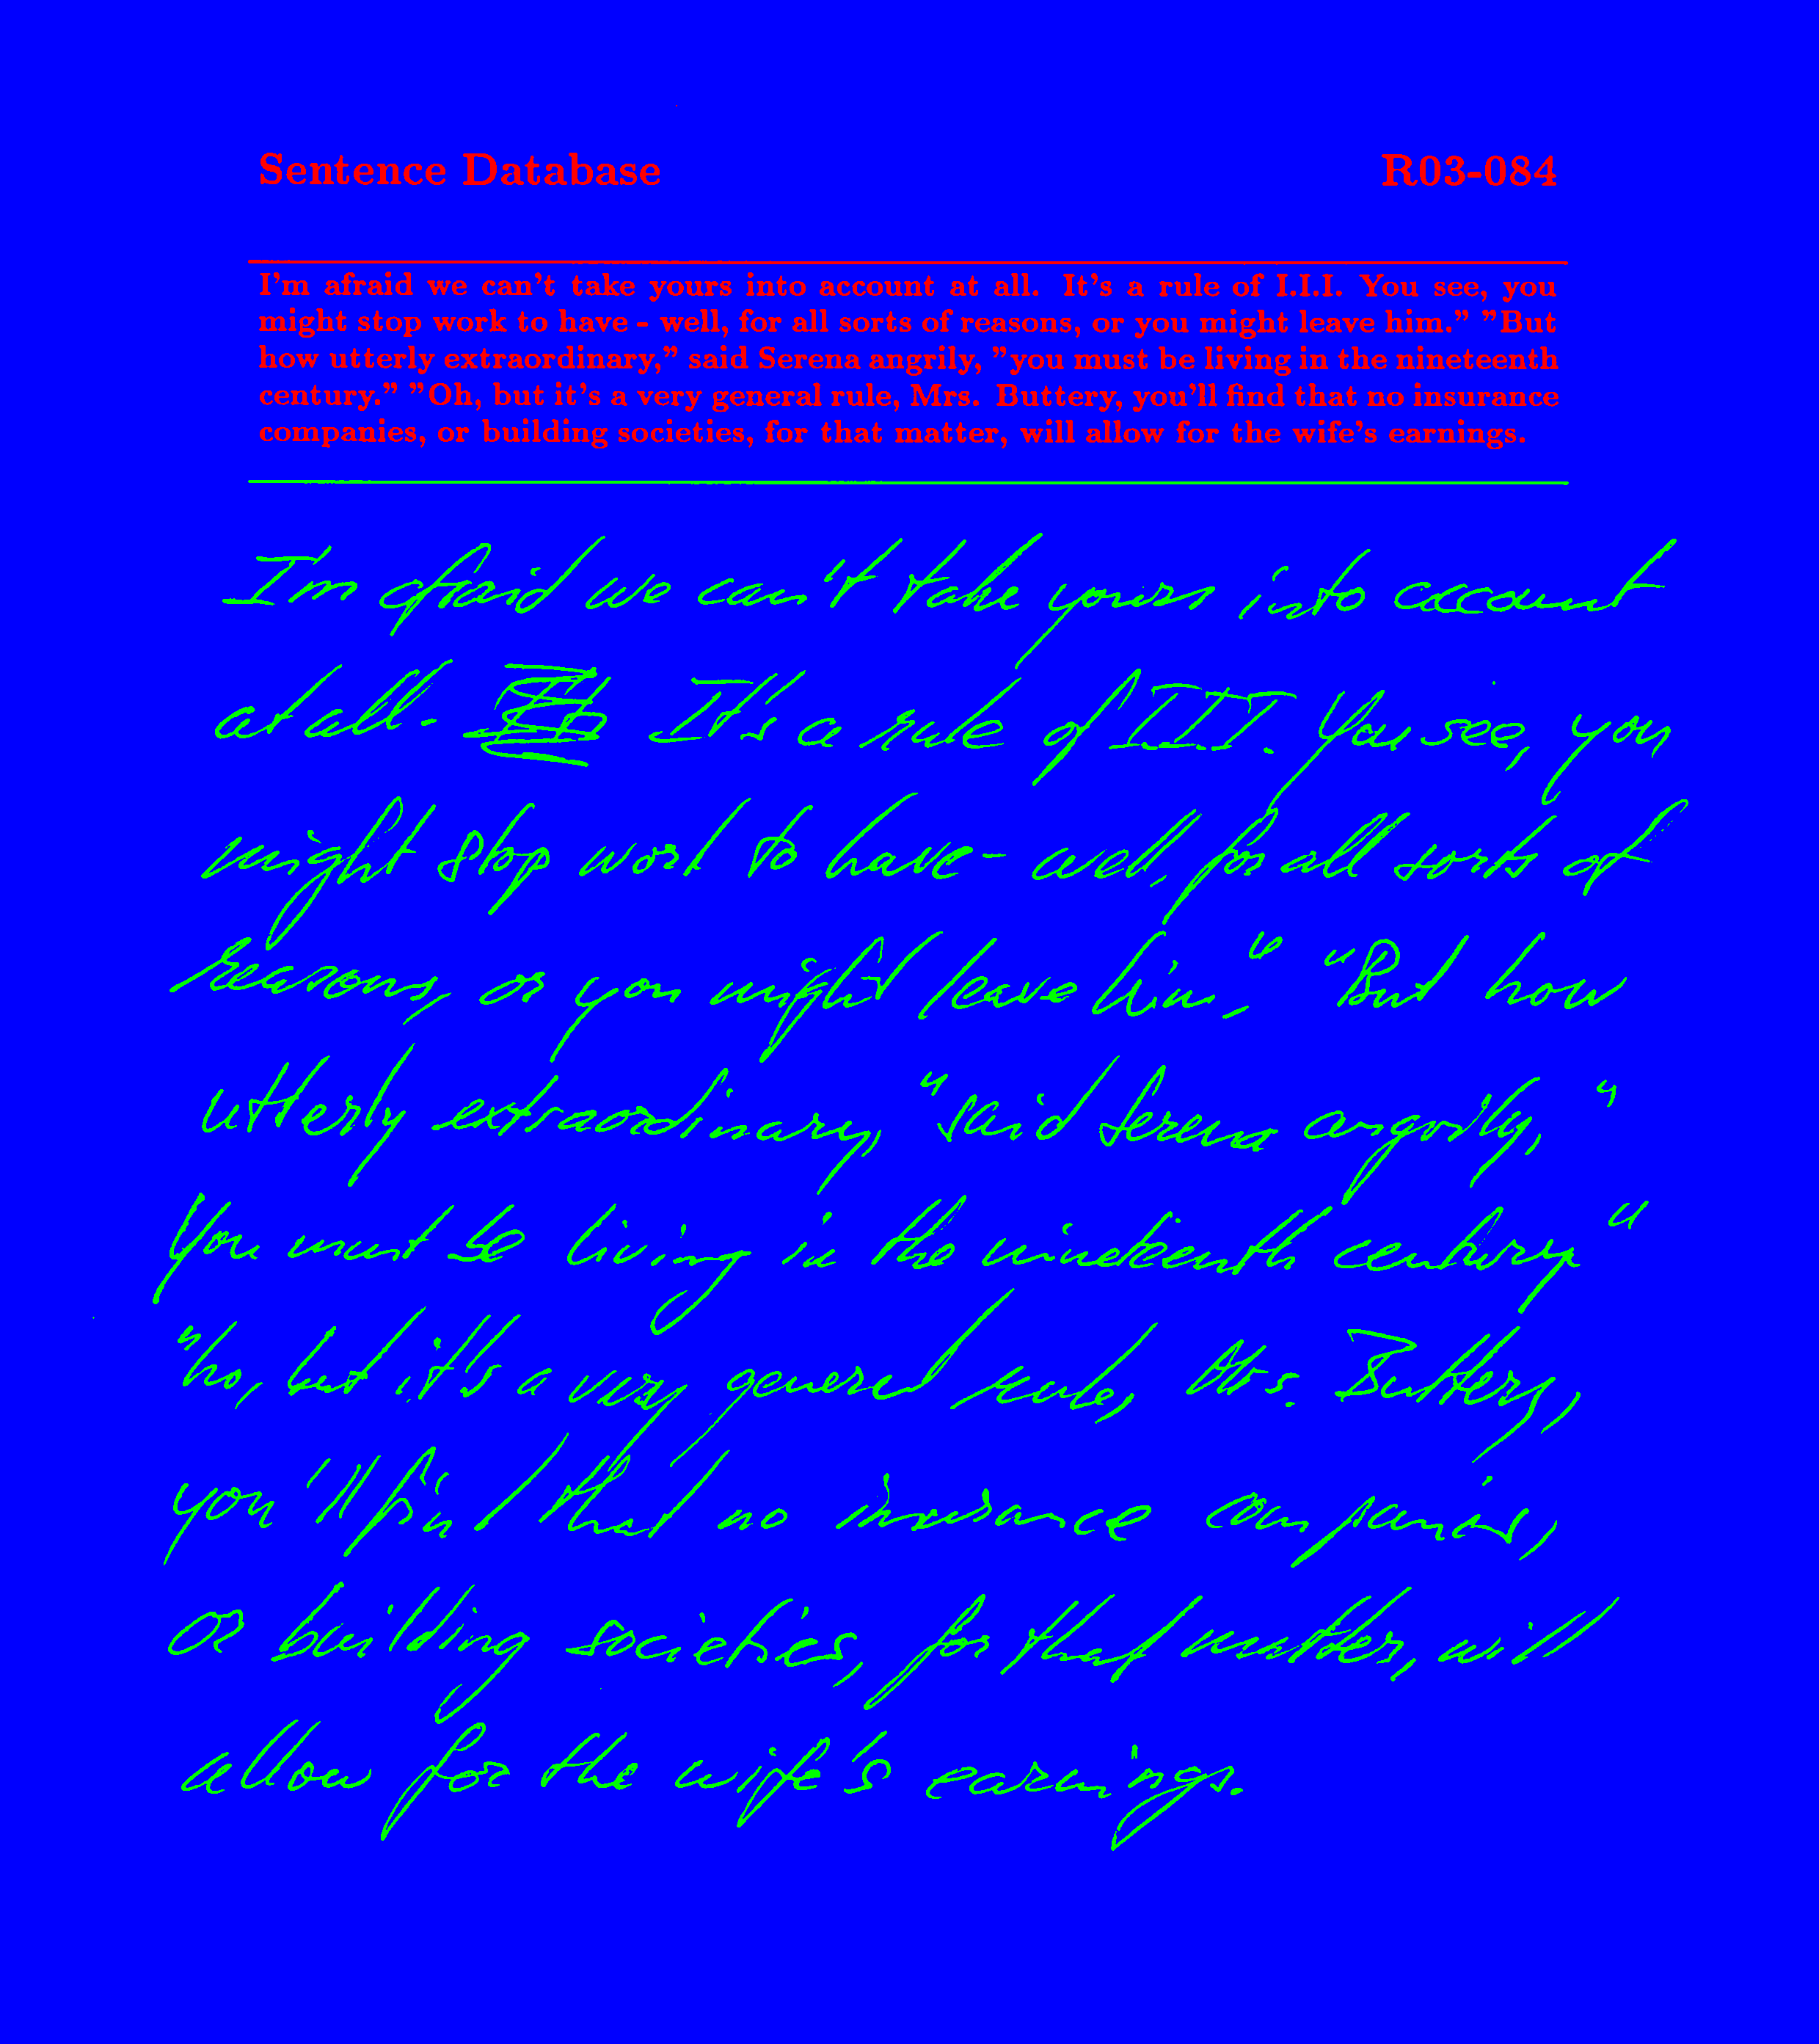 Sentence Database R03-084
I'm afraid we can't take yours into account at all. It's a rule of I.I.I. You see, you
might stop work to have - well, for all sorts of reasons, or you might leave him." "But
how utterly extraordinary," said Serena angrily, "you must be living in the nineteenth
century." "Oh, but it's a very general rule, Mrs. Buttery, you'll find that no insurance
companies, or building societies, for that matter, will allow for the wife's earnings.
I'm afraid we can't take yours into account
at all. It's a rule of I.I.I. You see, you
might stop work to have - well, for all sorts of
reasons, or you might leave him." "But how
utterly extraordinary, "said Serena angrily, "
You must be living in the nineteenth century "
"ho, but it's a very general rule, Mrs. Buttery,
you'll find that no insurance companies,
or building societies, for that matter, will
allow for the wife's earnings.